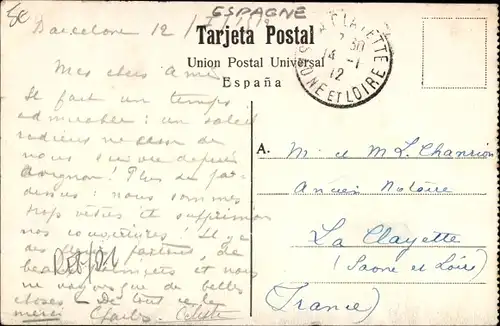 ESPAGNE
Barcelone 12/1/1912
Tarjeta Postal
Union Postal Universal
España
LA CLAYETTE
30
14 -1
12
SAONE ET LOIRE
Mes chers Amis
Il fait un temps
admirable : un soleil
radieux ne cesse de
nous suivre depuis
Avignon ! Plus de par-
dessus : nous sommes
trop vêtus et supprimon
nos couvertures ! Il y a
des fleurs partout, de
beaux palmiers et nous
ne voyons que de belles
choses - De tout cela
merci Charles. Céleste
A.
M. et M L. Chanrion
Ancien Notaire
La Clayette
(Saone et Loire)
(France)